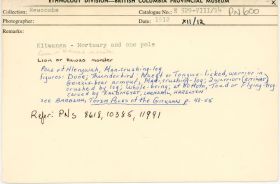 ETHNOLOGY DIVISION—BRITISH COLUMBIA PROVINCIAL MUSEUM
Collection: Newcombe
Catalogue No.: E 325-VIII/54
PN 600
Photographer:
Date: 1912
XII/12
Remarks:
Kitwanga - Mortuary and one pole
Lion or
Pole of Hlengwah, Man-crushing-log
figures: Dome; Thunderbird; Nuegt or Tongue-licked, warrior in
grizzly-bear armour; Man-crushing-log; Warrior
crushed by log; Whole-being; at bottom, Toad or Flying-frog
carved by
see Barbeau Totem Poles of the Gitksan p.
Refer: PNs 8618, 10385, 11991